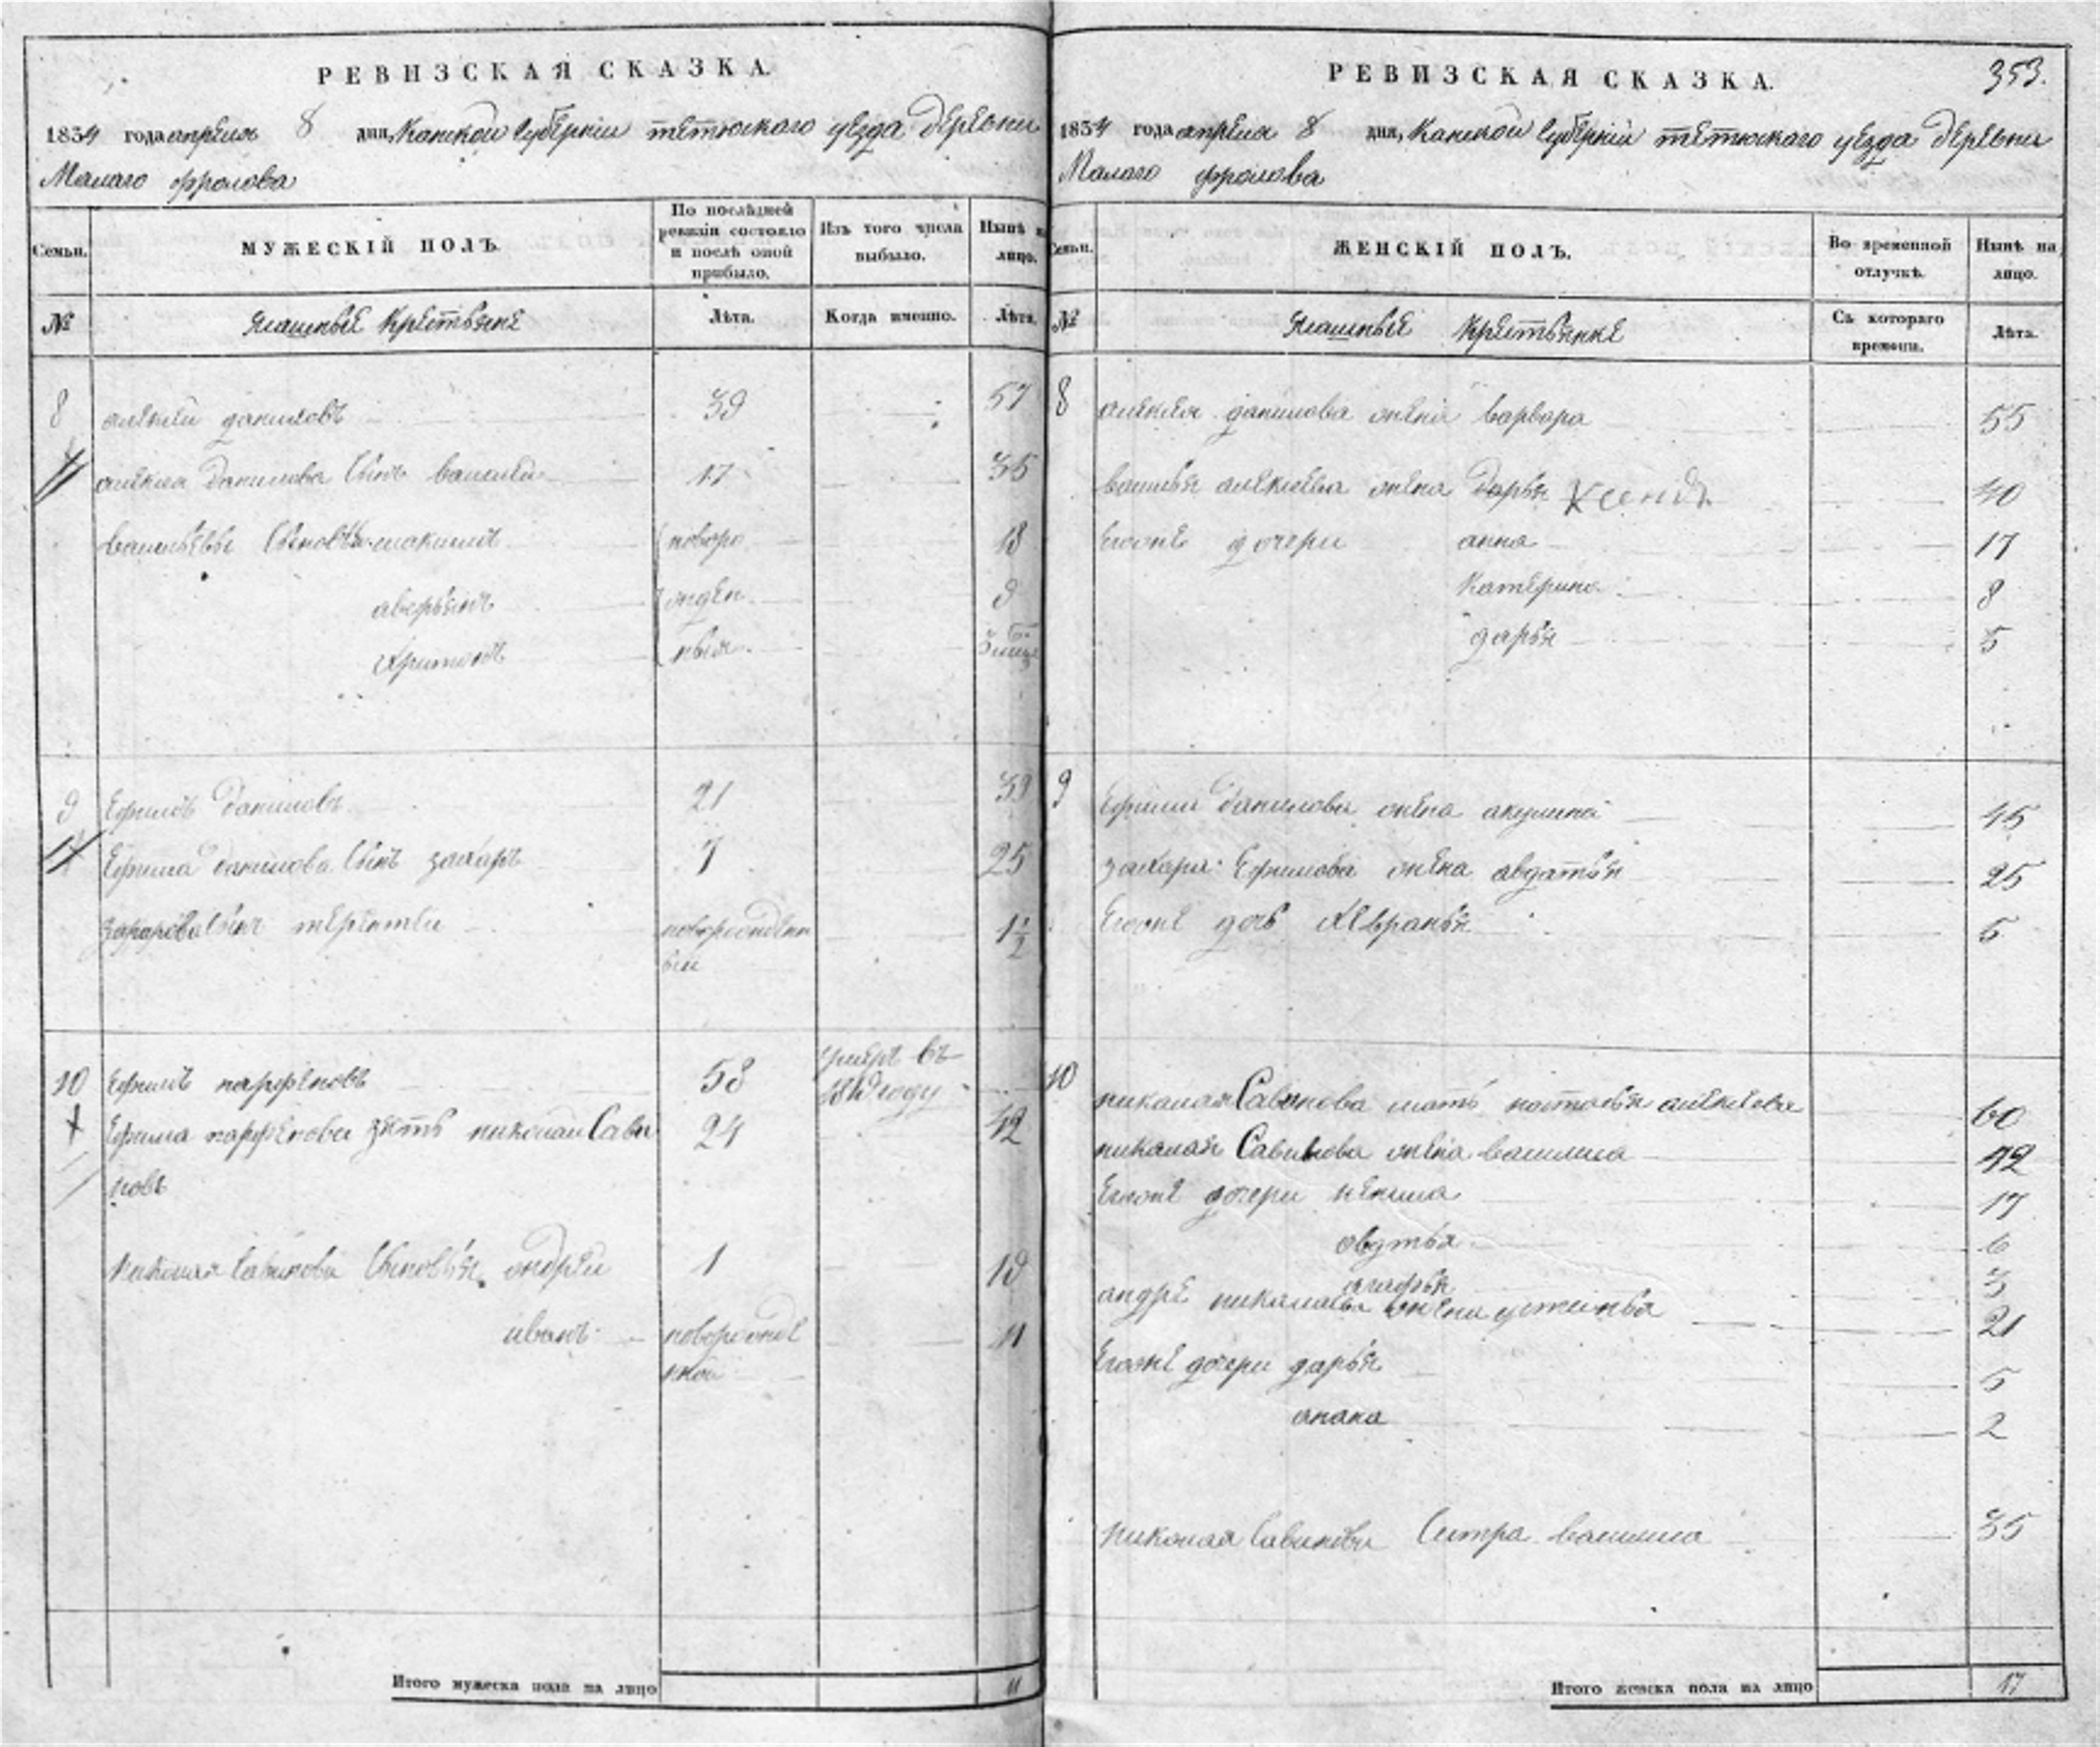 РЕВИЗСКАЯ СКАЗКА.
1834 года апреля 8 дня, Казской Губернiи тетюскаго уезда деревни
Малаго фролова
Семьи. МУЖЕСКIЙ ПОЛЪ. По послѣдней ревизiи состояло и послѣ оной прибыло. Изъ того числа выбыло. Нынѣ на лицо.
№ Ясашныя Крестьяне Лѣта. Когда именно. Лѣта.
8 алексеи даниловъ 39 57
алексея данилова Сынъ василеи 17 35
васильевы Сыновья максимъ новоро 18
аверьянъ жден 9
Харитонъ ныя
9 Ефимъ даниловъ 21 39
Ефима данилова Сынъ захаръ 7 25
захарова Сынъ терентеи новорожден 1 1/2
ныи
10 Ефимъ парфеновъ 58 умеръ въ
году
Ефима парфенова зять николаи Сави 24 42
новъ
николая Савинова Сыновья андреи 1 19
иванъ новорожде 11
нной
Итого мужеска пола на лицо 11
РЕВИЗСКАЯ СКАЗКА. 353.
1834 года апреля 8 дня, Казской Губернiи тетюскаго уезда деревни
Малаго фролова
Семьи. ЖЕНСКIЙ ПОЛЪ. Во временной отлучкѣ. Нынѣ на лицо.
№ Ясашныя Крестьянке Съ котораго времени. Лѣта.
8 алексея данилова жена варвара 55
василья алексеева жена дарья Ксенья 40
Егоже дочери анна 17
Катерина 8
дарья 5
9 Ефима данилова жена акулина 45
захара Ефимова жена авдатья 25
Егоже дочь Хевранья 5
10 николая Савинова мать настасья алексеева 60
николая Савинова жена василиса 42
Егоже дочери 17
овдтья 6
агафья 3
андре николаева жена устинья 21
Егоже дочери дарья 5
анана 2
николая Савинова Систра василиса 35
Итого женска пола на лицо 17